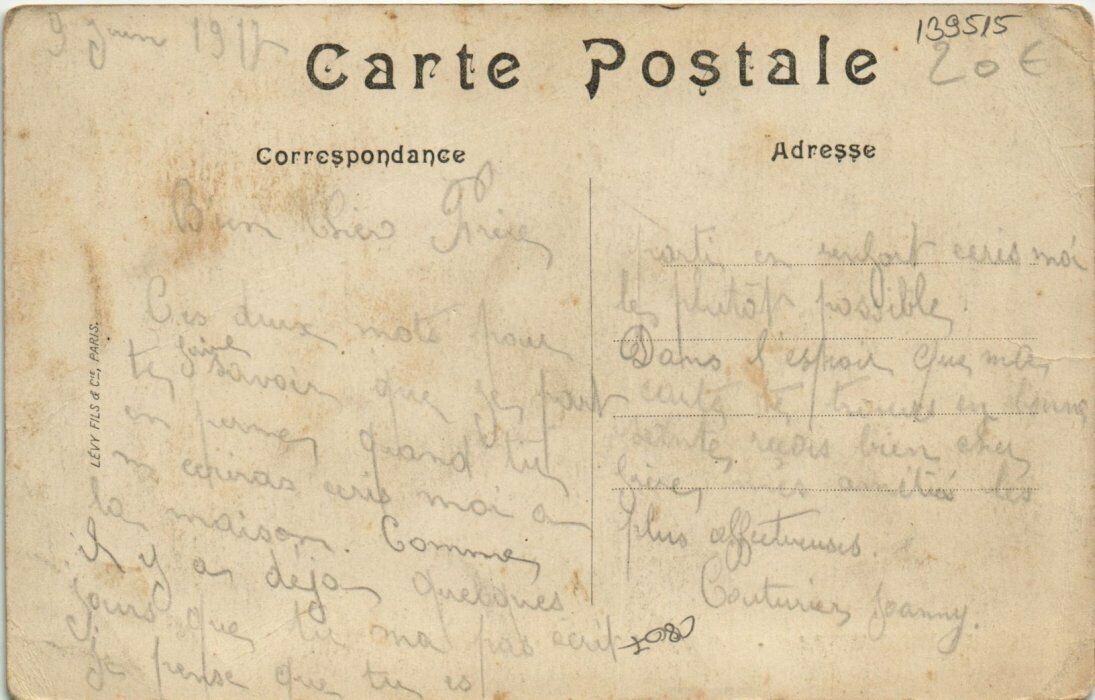 9 Juin 1917
139515
20 €
Carte Postale
Correspondance
Adresse
Bien Cher Frère
Ces deux mots pour
te faire savoir que je part
en perme, quand tu
m ecriras ecris moi a
la maison. Comme
il y a deja quelques
jours que tu ma pas écrit
je pense que tu es
parti en renfort ecris moi
le plutôt possible
Dans l'espoir que ma
carte te trouves en bonne
sante reçois bien cher
frère mes amitiés les
plus affectueuses.
Couturier Joanny.
LÉVY FILS & Cie, PARIS.